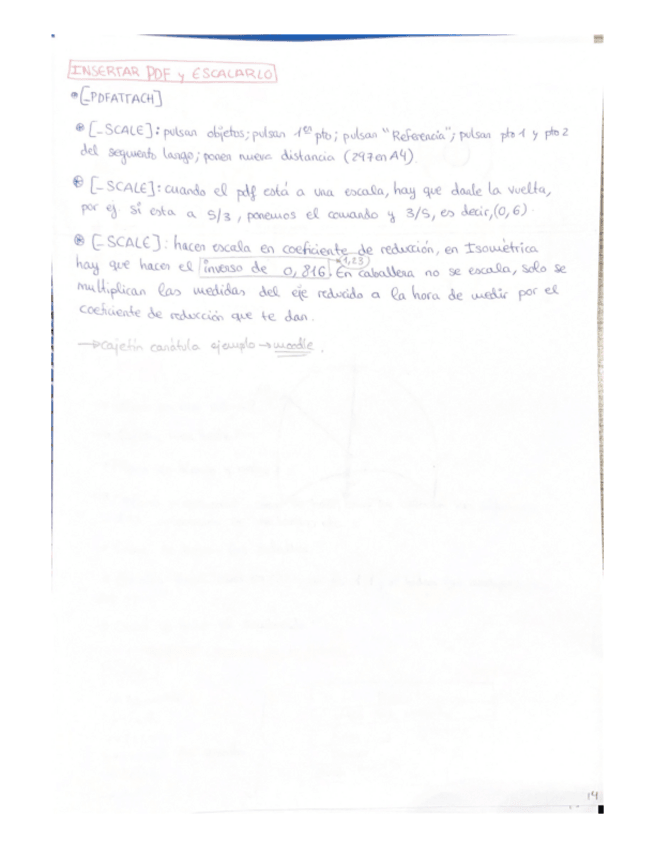 INSERTAR PDF y ESCALARLO
[_PDFATTACH]
[_SCALE]: pulsar objetos; pulsar 1er pto; pulsar "Referencia"; pulsar pto 1 y pto 2
del segmento largo; poner nueva distancia (297 en A4).
[_SCALE]: cuando el pdf está a una escala, hay que darle la vuelta,
por ej si esta a 5/3, ponemos el comando y 3/5, es decir, (0,6).
[_SCALE]: hacer escala en coeficiente de reducción, en Isométrica
hay que hacer el inverso de 0,816. En caballera no se escala, solo se
multiplican las medidas del eje reducido a la hora de medir por el
coeficiente de reducción que te dan.
→ cajetín carátula ejemplo → moodle.
14